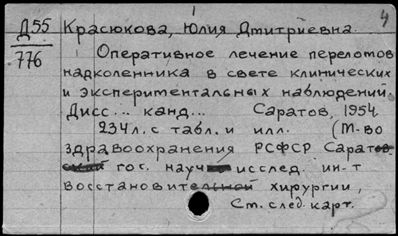 4
Д55 Красюкова, Юлия Дмитриевна.
776 Оперативное лечение переломов
надколенника в свете клинических
и экспериментальных наблюдений.
Дисс... канд... Саратов, 1954
234 л. с табл. и илл. (М-во
здравоохранения РСФСР Саратов
ский гос. науч исслед. ин-т
восстановительной хирургии,
См. след. карт.